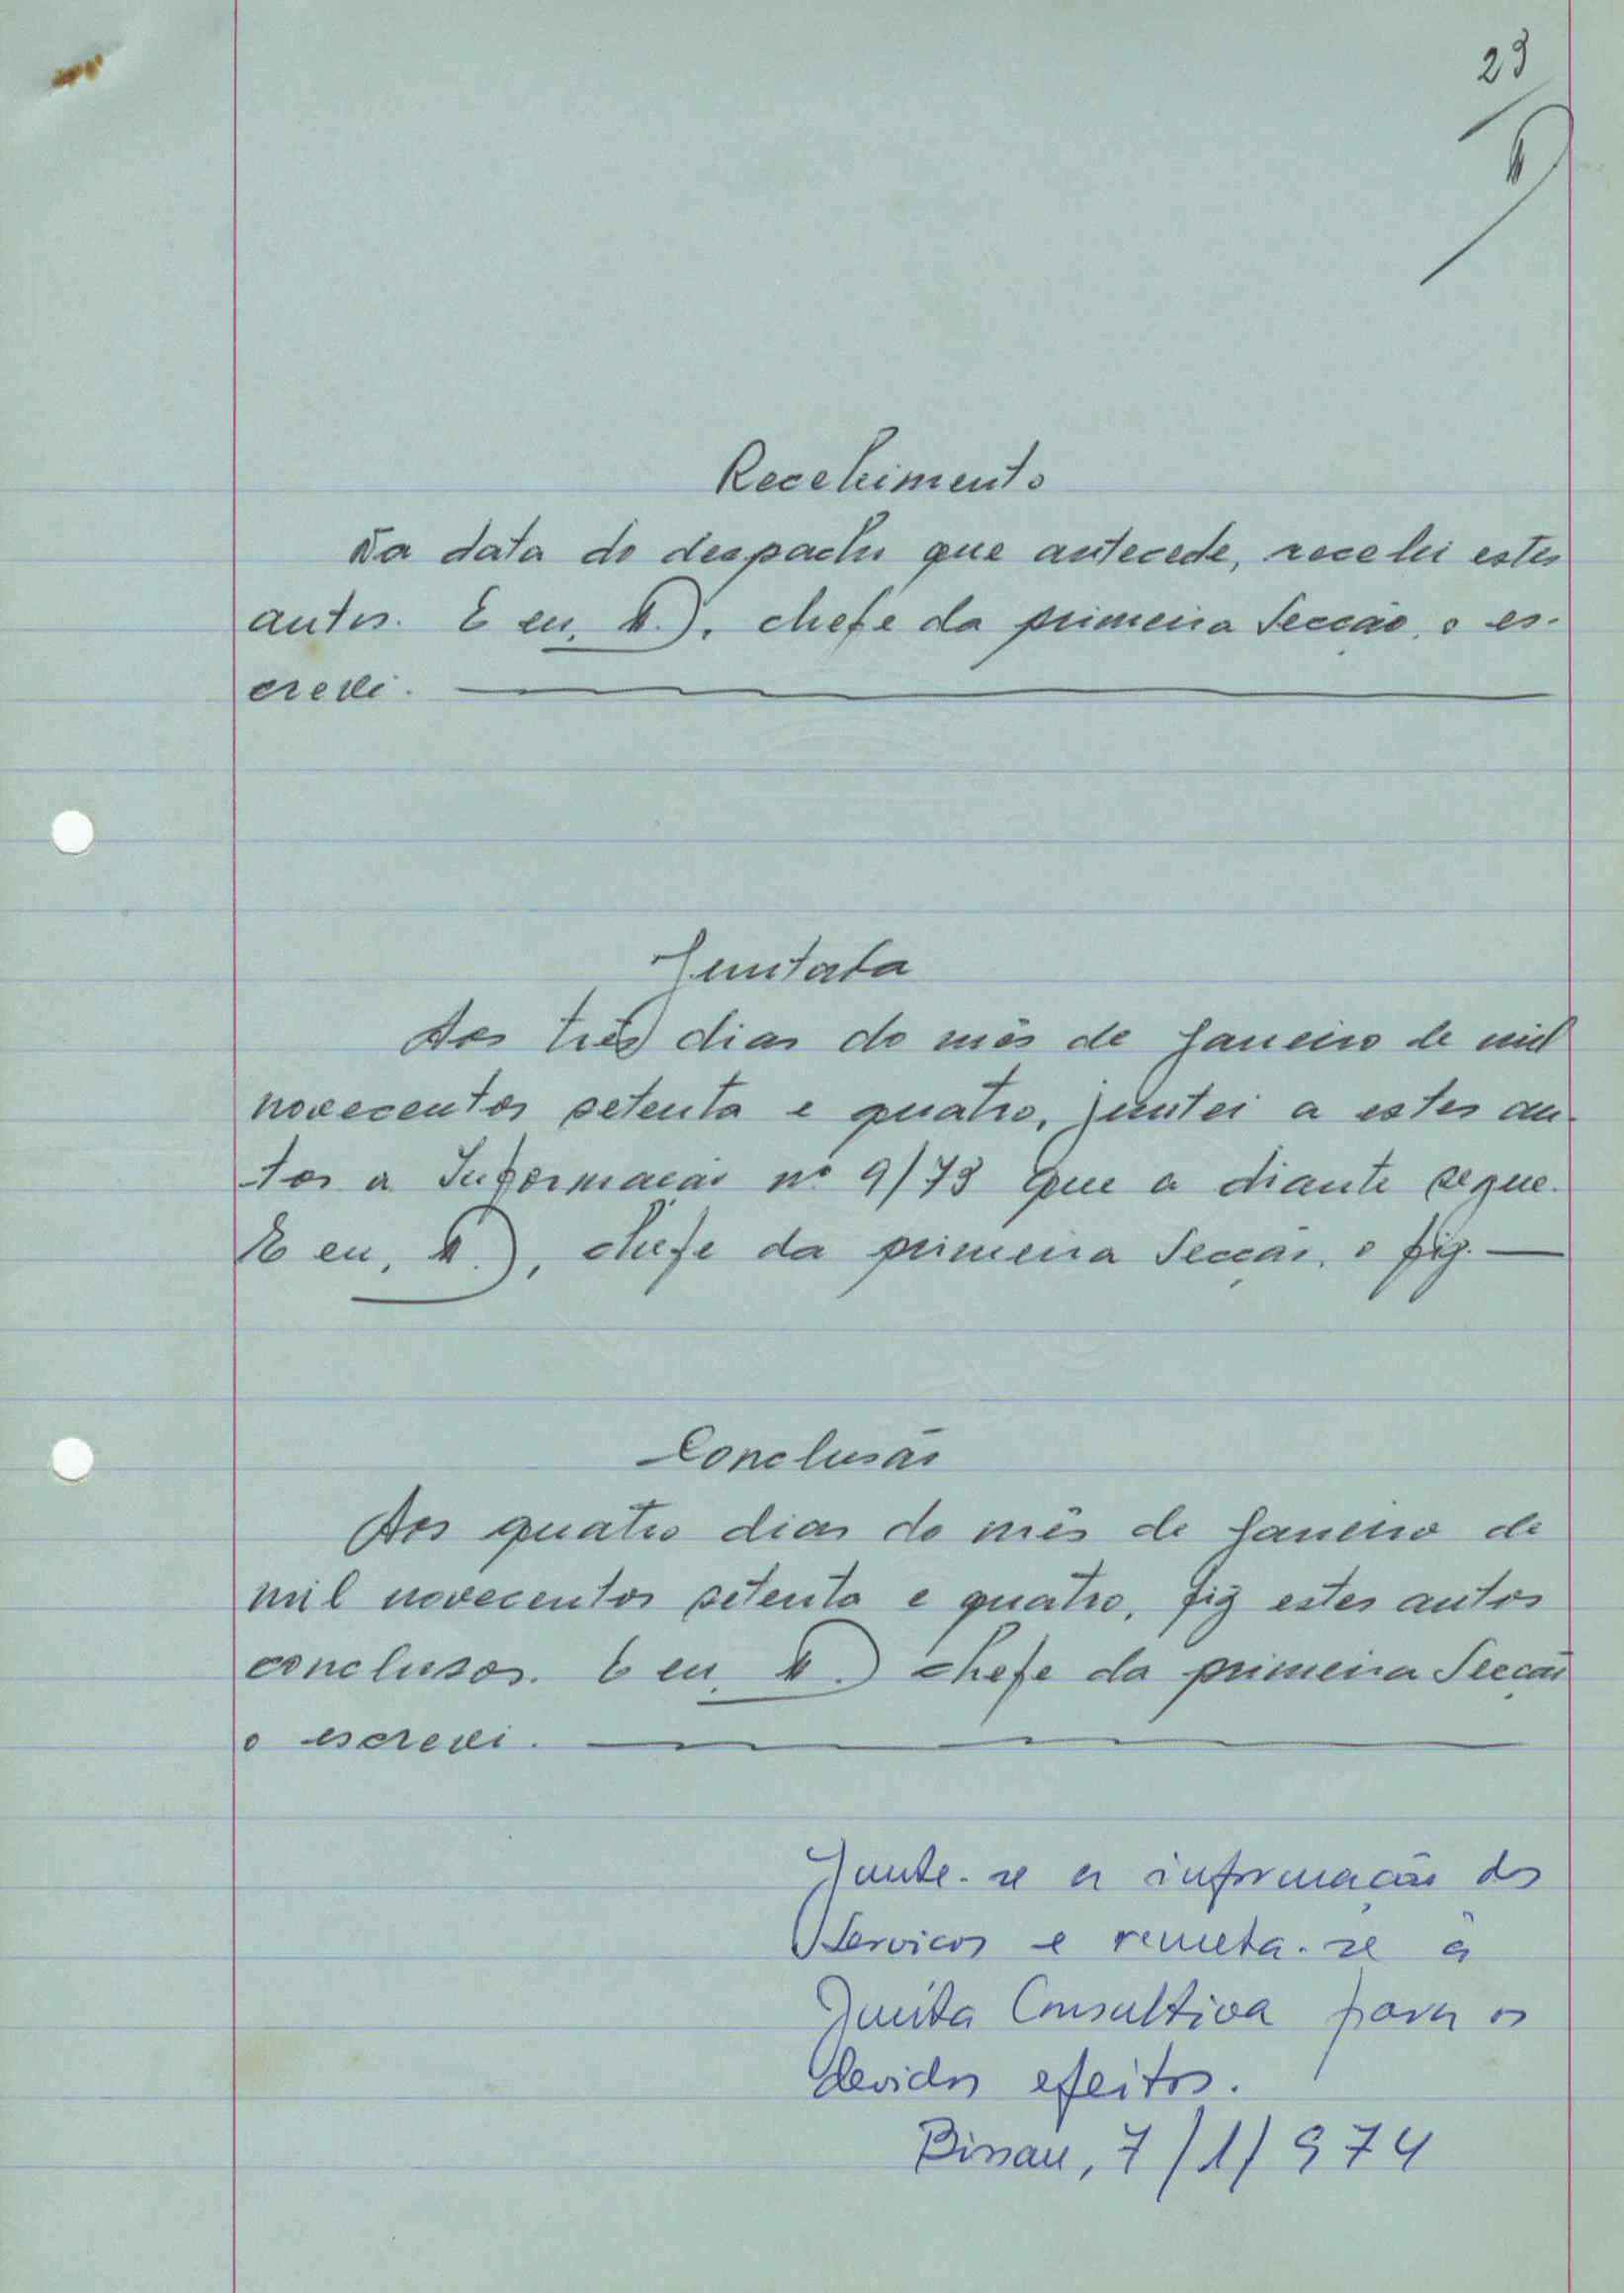 23
Recebimento
Na data do despacho que antecede, recebi estes
autos. E eu, chefe da primeira Secção, o es-
crevi.
Juntada
Aos três dias do mês de Janeiro de mil
novecentos setenta e quatro, juntei a estes au-
tos a Informação nº 9/73 que a diante segue.
E eu, chefe da primeira Secção, o fiz.
Conclusão
Aos quatro dias do mês de Janeiro de
mil novecentos setenta e quatro, fiz estes autos
conclusos. E eu, chefe da primeira Secção
o escrevi.
Junte-se a informação dos
Serviços e remeta-se à
Junta Consultiva para os
devidos efeitos.
Bissau, 7/1/974